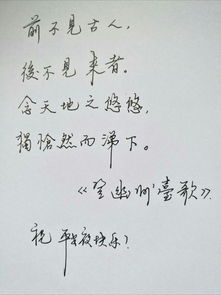 前不見古人，
後不見來者。
念天地之悠悠，
獨愴然而涕下。
《登幽州臺歌》
祝 平安夜快乐！